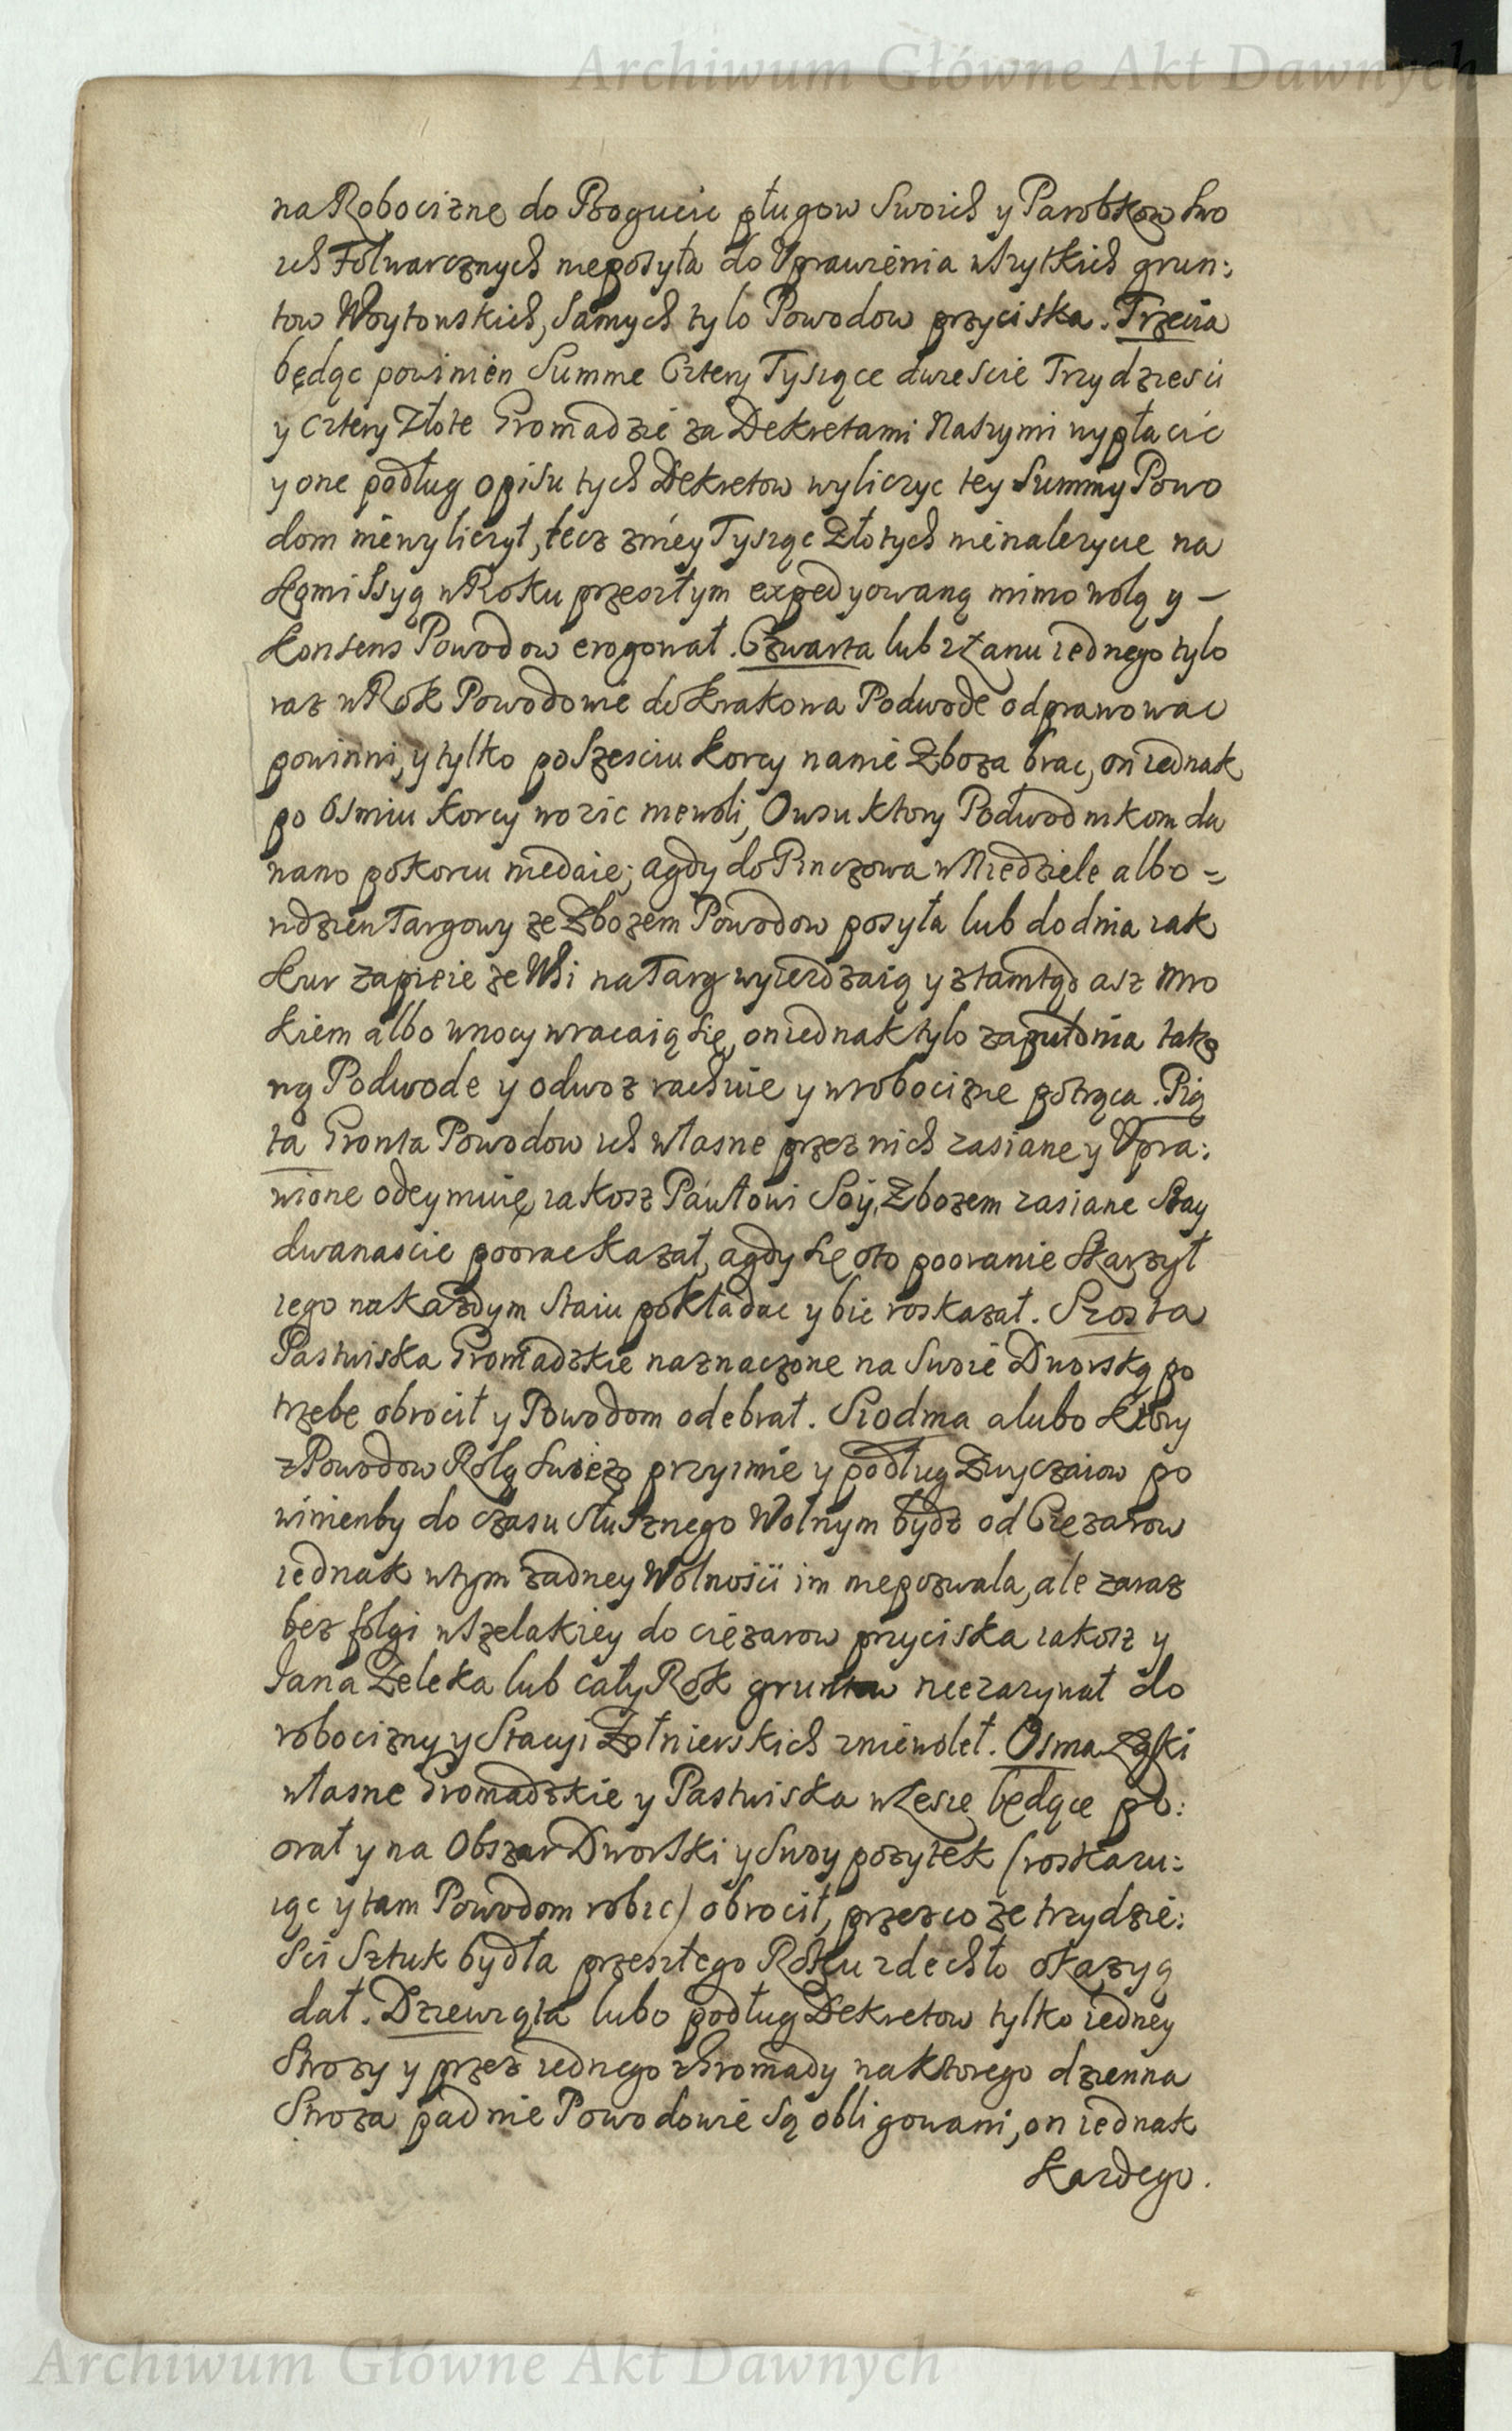 Archiwum Główne Akt Dawnych
na Robociznę do Bogucic pługow Swoich y Parobkow Swo
ich Folwarcznych nieposyła do Uprawienia wszytkich grun:
tow Woytowskich, Samych tylo Powodow przyciska. Trzecia
będąc powinien Summe Cztery Tysiące dwieście Trzydziesci
y cztery Złote Gromadzie za Dekretami Naszymi wypłacić
y one podług opisu tych Dekretow wyliczyc tey Summy Powo
dom niewyliczył, lecz zniey Tysiąc Złotych nienalezycie na
Kommissyą w Roku przeszłym expedyowaną mimo wolą y –
Konsens Powodow erogował. Czwarta lub z Łanu iednego tylo
raz w Rok Powodowie do Krakowa Podwode odprawowac
powinni, y tylko po Szesciu Korcy na nie Zboza brac, on iednak
po Osmiu Korcy wozic niewoli, Owsu ktory Podwodnikom da
wano po korcu niedaie; a gdy do Pinczowa w Niedziele albo =
w dzien Targowy ze Zbozem Powodow posyła lub do dnia iak
Kur zapieie ze Wsi na Targ wyiezdzaią y ztamtąd asz Mro
kiem albo w nocy wracaią się, on iednak tylo za puł dnia tako
wą Podwode y odwoz rachuie y w robociznie potrąca. Pią
ta Gronta Powodow ich własne przez nich zasiane y Upra:
wione odeymuie, iakosz Pawłowi Soy, Zbozem zasiane Stay
dwanascie poorac kazał, a gdy się o to pooranie Skarzył
iego na kazdym Staiu pokładac y bic roskazał. Szosta
Pastwiska Gromadzkie naznaczone na Swoie Dworską po
trzebę obrocił y Powodom odebrał. Siodma alubo Ktory
z Powodow Rolą Swiezo przyimie y podług Zwyczaiow po
winienby do czasu słusznego Wolnym bydz od Ciezarow
iednak w tym zadney Wolności im niepozwala, ale zaraz
bez folgi wszelakiey do ciezarow przyciska iakosz y
Jana Zeleka lub cały Rok gruntow niezazynał do
robocizny y Stacyi Zołnierskich zniewolił. Osma Łąki
własne Gromadzkie y Pastwiska w Lesie będące po:
orał y na Obszar Dworski y Swoy pozytek (roskazu:
iąc y tam Powodom robic) obrocił, przez co ze trzydzie:
Sci Sztuk bydła przeszłego Roku zdechło okazyą
dał. Dziewiąta lubo podług Dekretow tylko iedney
Strozy y przez iednego z Gromady na ktorego dzienna
Stroza padnie Powodowie Są obligowani, on iednak
Kazdego.
Archiwum Główne Akt Dawnych